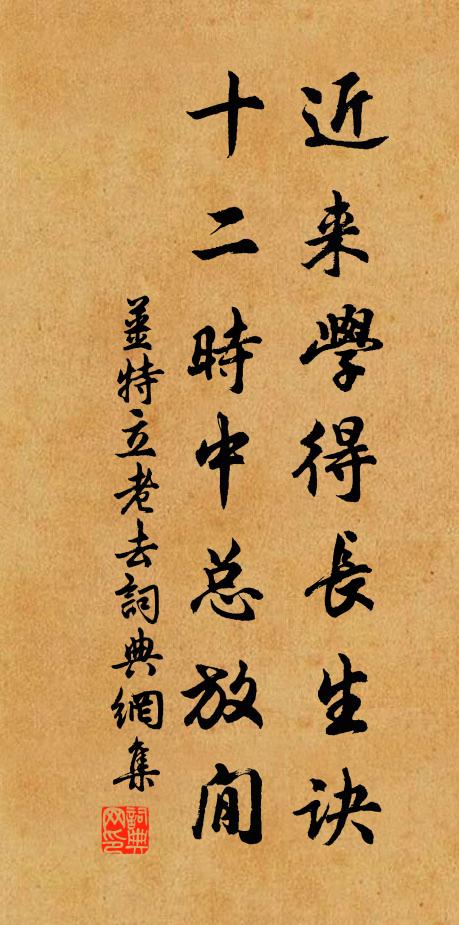 近来學得長生訣
十二時中总放閒
薑特立老去詞典網集
詞典网印